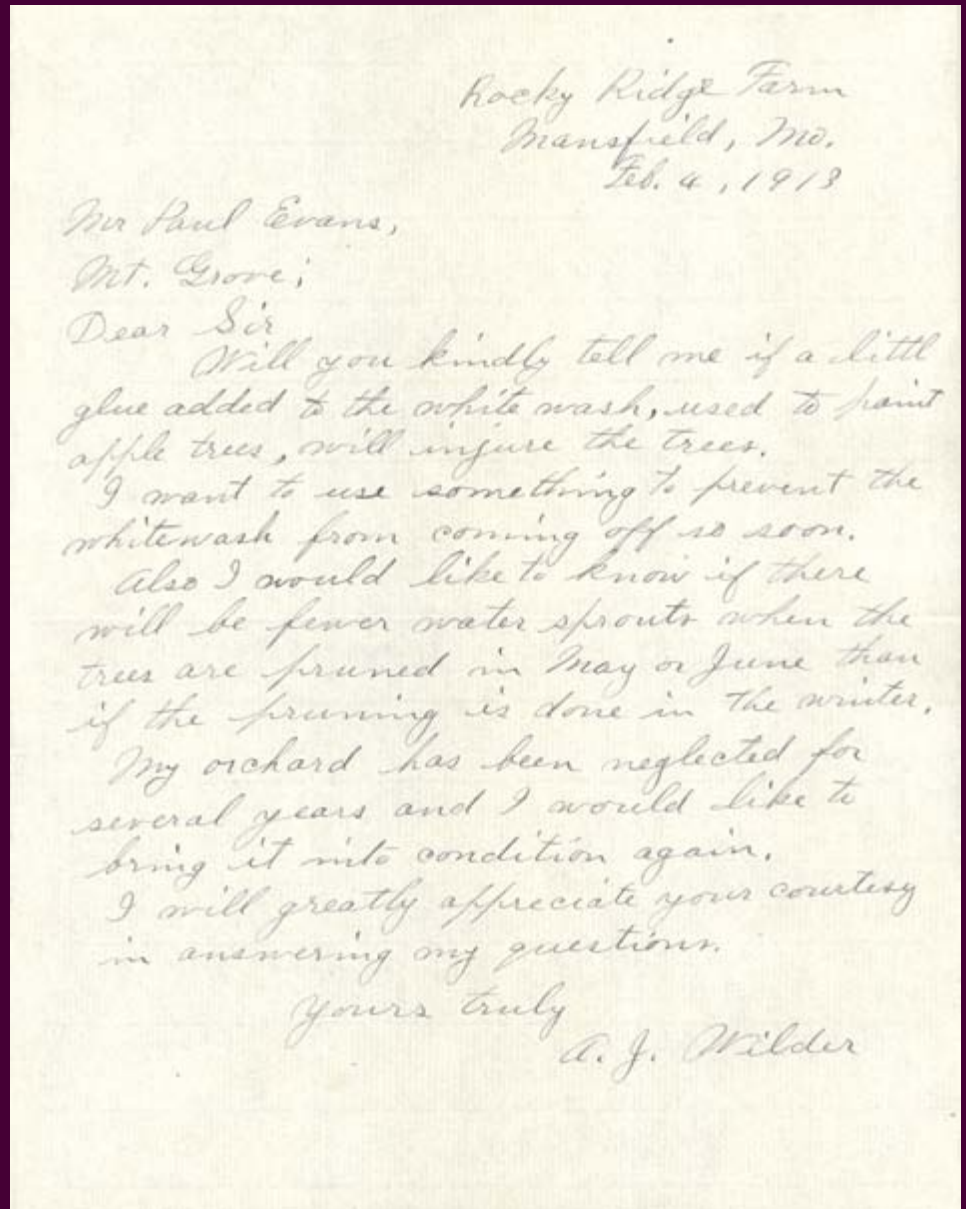 Rocky Ridge Farm
Mansfield, Mo.
Feb. 4, 1913
Mr Paul Evans,
Mt. Grove;
Dear Sir
Will you kindly tell me if a littl
glue added to the white wash, used to paint
apple trees, will injure the trees.
I want to use something to prevent the
whitewash from coming off so soon.
Also I would like to know if there
will be fewer water sprouts when the
trees are pruned in May or June than
if the pruning is done in the winter.
My orchard has been neglected for
several years and I would like to
bring it into condition again.
I will greatly appreciate your courtesy
in answering my questions.
Yours truly
A. J. Wilder